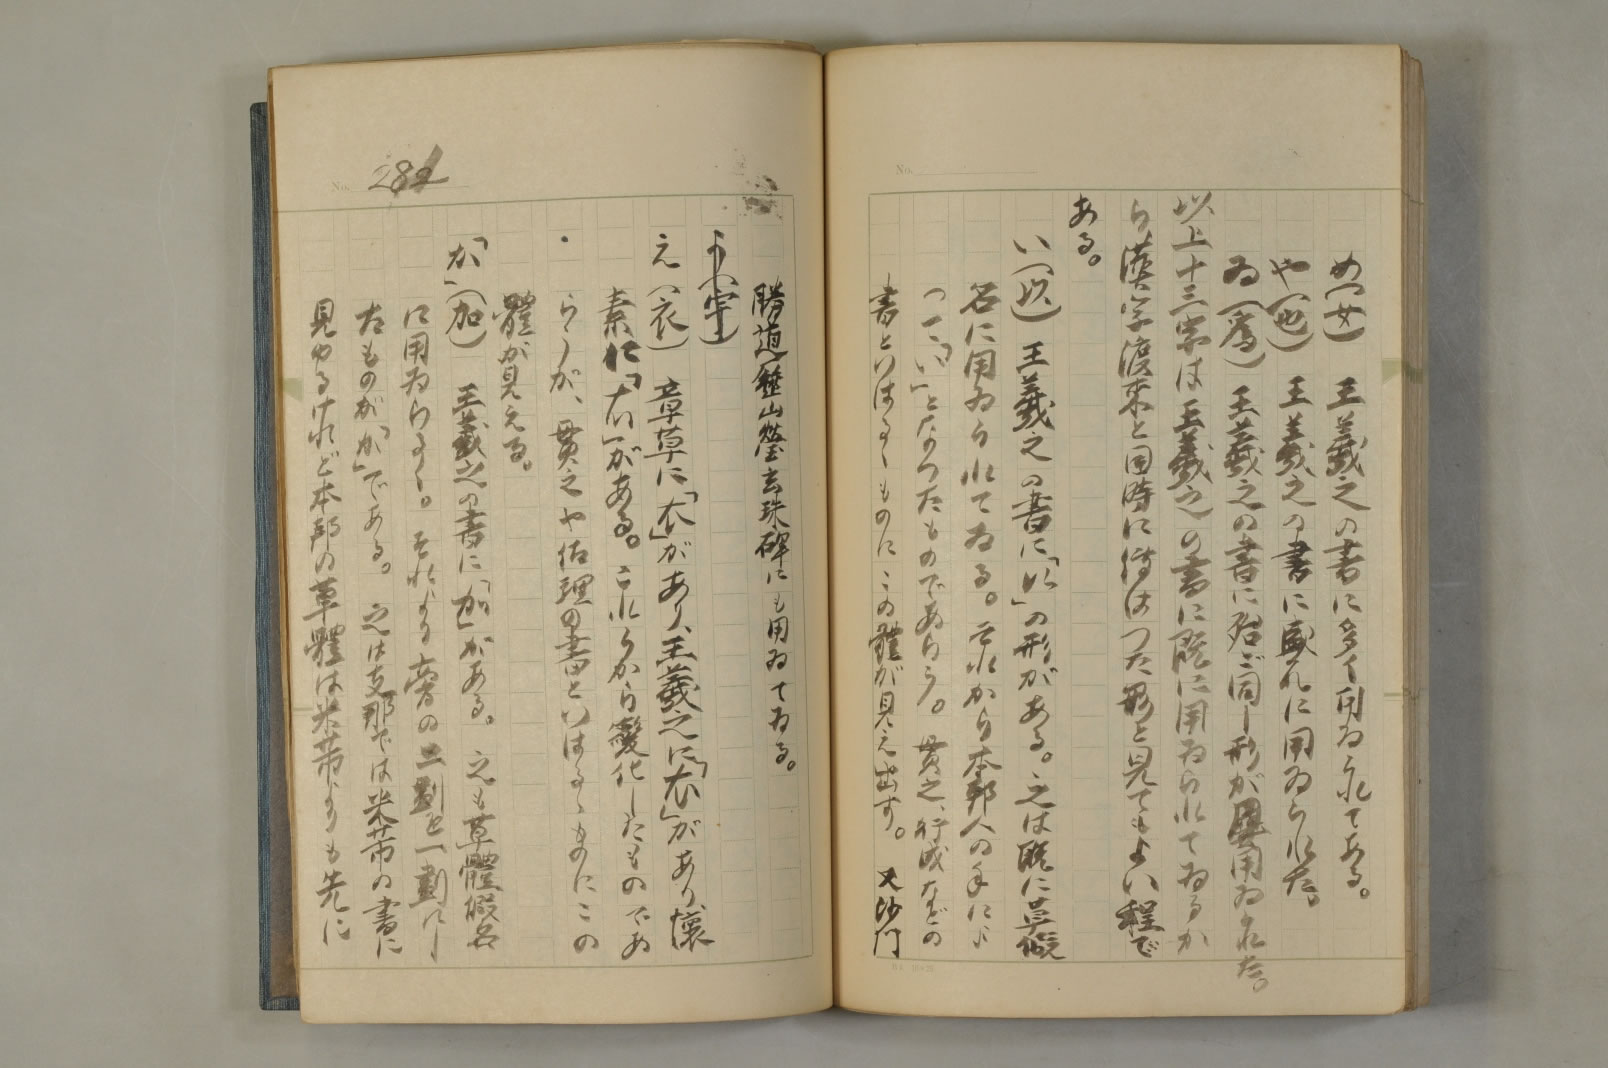 め(女) 王羲之の書に多く用ゐられてある。
や(也) 王羲之の書に盛んに用ゐられた。
ゐ(為) 王羲之の書に殆ど同じ形が屡用ゐられた。
以上十三字は王羲之の書に既に用ゐられてゐるか
ら漢字渡来と同時に傳はつた形と見てもよい程で
ある。
い(以) 王羲之の書に「以」の形がある。之は既に草假
名に用ゐられてゐる。それから本邦人の手によ
つて「い」となつたものであらう。貫之、行成などの
書といはるゝものにこの體が見え出す。又沙門
勝道歴山瑩玄珠碑にも用ゐてゐる。
う(宇)
え(衣) 章草に「衣」があり、王羲之に「衣」があり、懐
素に「衣」がある。これらから變化したものであ
らうが、貫之や佐理の書といはるゝものにこの
體が見える。
「か」(加) 王羲之の書に「加」がある。之も草體假名
に用ゐらる。それより旁の二劃を一劃にし
たものが「か」である。之は支那では米芾の書に
見ゆるけれど本邦の草體は米芾よりも先に
No. 282
No.